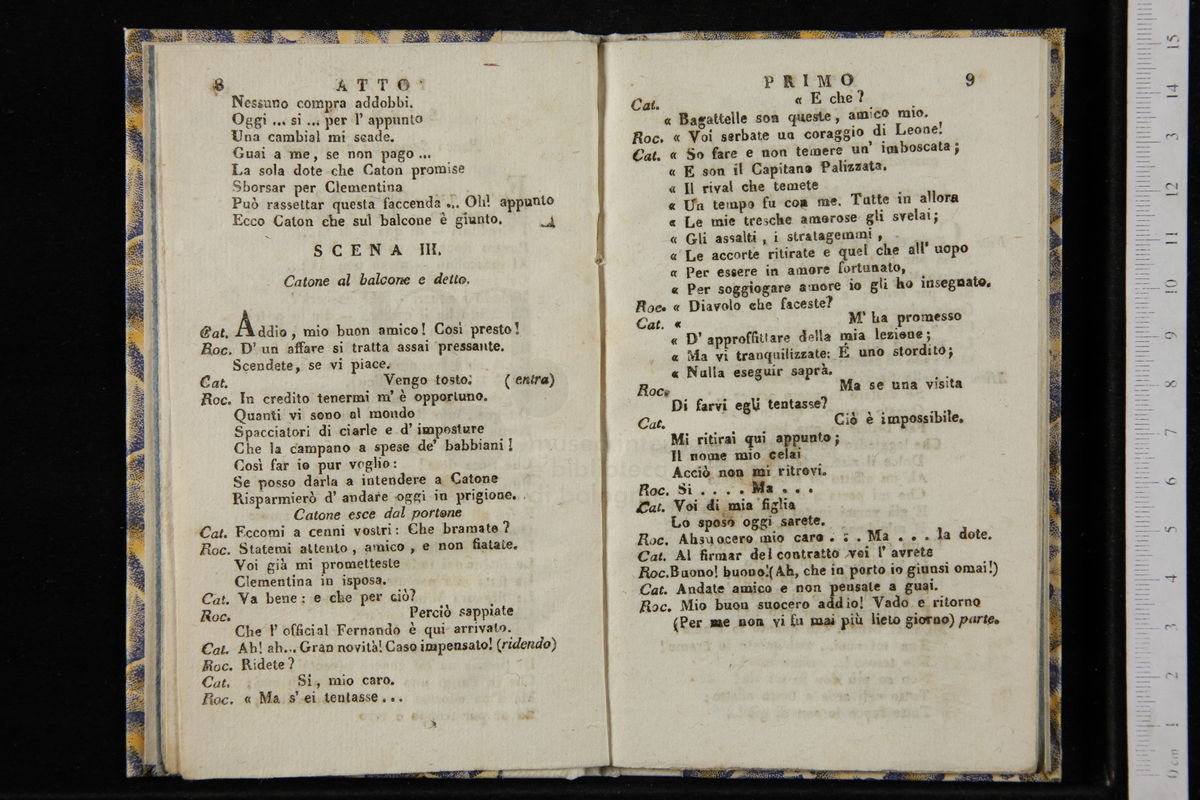 8 ATTO
Nessuno compra addobbi.
Oggi ... si ... per l' appunto
Una cambial mi scade.
Guai a me, se non pago ...
La sola dote che Caton promise
Sborsar per Clementina
Può rassettar questa faccenda ... Oh! appunto
Ecco Caton che sul balcone è giunto.
SCENA III.
Catone al balcone e detto.
Cat. Addio, mio buon amico! Così presto!
Roc. D' un affare si tratta assai pressante.
Scendete, se vi piace.
Cat. Vengo tosto. (entra)
Roc. In credito tenermi m' è opportuno.
Quanti vi sono al mondo
Spacciatori di ciarle e d' imposture
Che la campano a spese de' babbiani!
Così far io pur voglio:
Se posso darla a intendere a Catone
Risparmierò d' andare oggi in prigione.
Catone esce dal portone
Cat. Eccomi a cenni vostri: Che bramate?
Roc. Statemi attento, amico, e non fiatate.
Voi già mi prometteste
Clementina in isposa.
Cat. Va bene: e che per ciò?
Roc. Perciò sappiate
Che l' official Fernando è qui arrivato.
Cat. Ah! ah... Gran novità! Caso impensato! (ridendo)
Roc. Ridete?
Cat. Sì, mio caro.
Roc. « Ma s' ei tentasse...
PRIMO 9
Cat. « E che?
« Bagattelle son queste, amico mio.
Roc. « Voi serbate un coraggio di Leone!
Cat. « So fare e non temere un' imboscata;
« E son il Capitano Palizzata.
« Il rival che temete
« Un tempo fu con me. Tutte in allora
« Le mie tresche amorose gli svelai;
« Gli assalti, i stratagemmi,
« Le accorte ritirate e quel che all' uopo
« Per essere in amore fortunato,
« Per soggiogare amore io gli ho insegnato.
Roc. « Diavolo che faceste?
Cat. « M' ha promesso
« D' approffittare della mia lezione;
« Ma vi tranquilizzate: È uno stordito;
« Nulla eseguir saprà.
Roc. Ma se una visita
Di farvi egli tentasse?
Cat. Ciò è impossibile.
Mi ritirai qui appunto;
Il nome mio celai
Acciò non mi ritrovi.
Roc. Si .... Ma ...
Cat. Voi di mia figlia
Lo sposo oggi sarete.
Roc. Ahsuocero mio caro ... Ma ... la dote.
Cat. Al firmar del contratto voi l' avrete
Roc. Buono! buono!(Ah, che in porto io giunsi omai!)
Cat. Andate amico e non pensate a guai.
Roc. Mio buon suocero addio! Vado e ritorno
(Per me non vi fu mai più lieto giorno) parte.